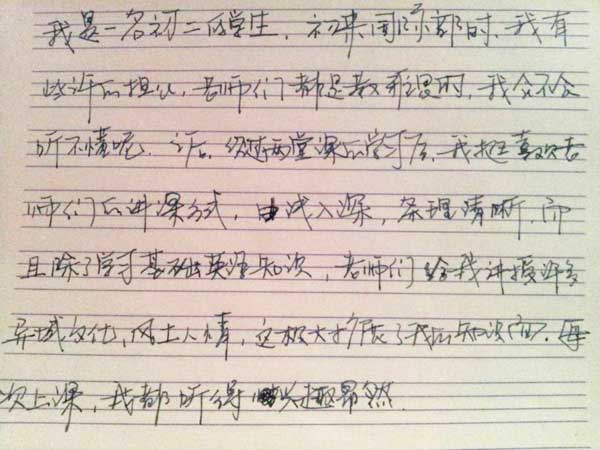 我是一名初二的学生,初来国际部时,我有
些许的担心,老师们都是教雅思的,我会不会
听不懂呢。之后,经过两堂课的学习后,我挺喜欢老
师们的讲课方式,由浅入深,条理清晰,而
且除了学习基础英语知识,老师们给我讲授许多
异域文化,风土人情,这极大扩展了我的知识面。每
次上课,我都听得兴趣昂然。